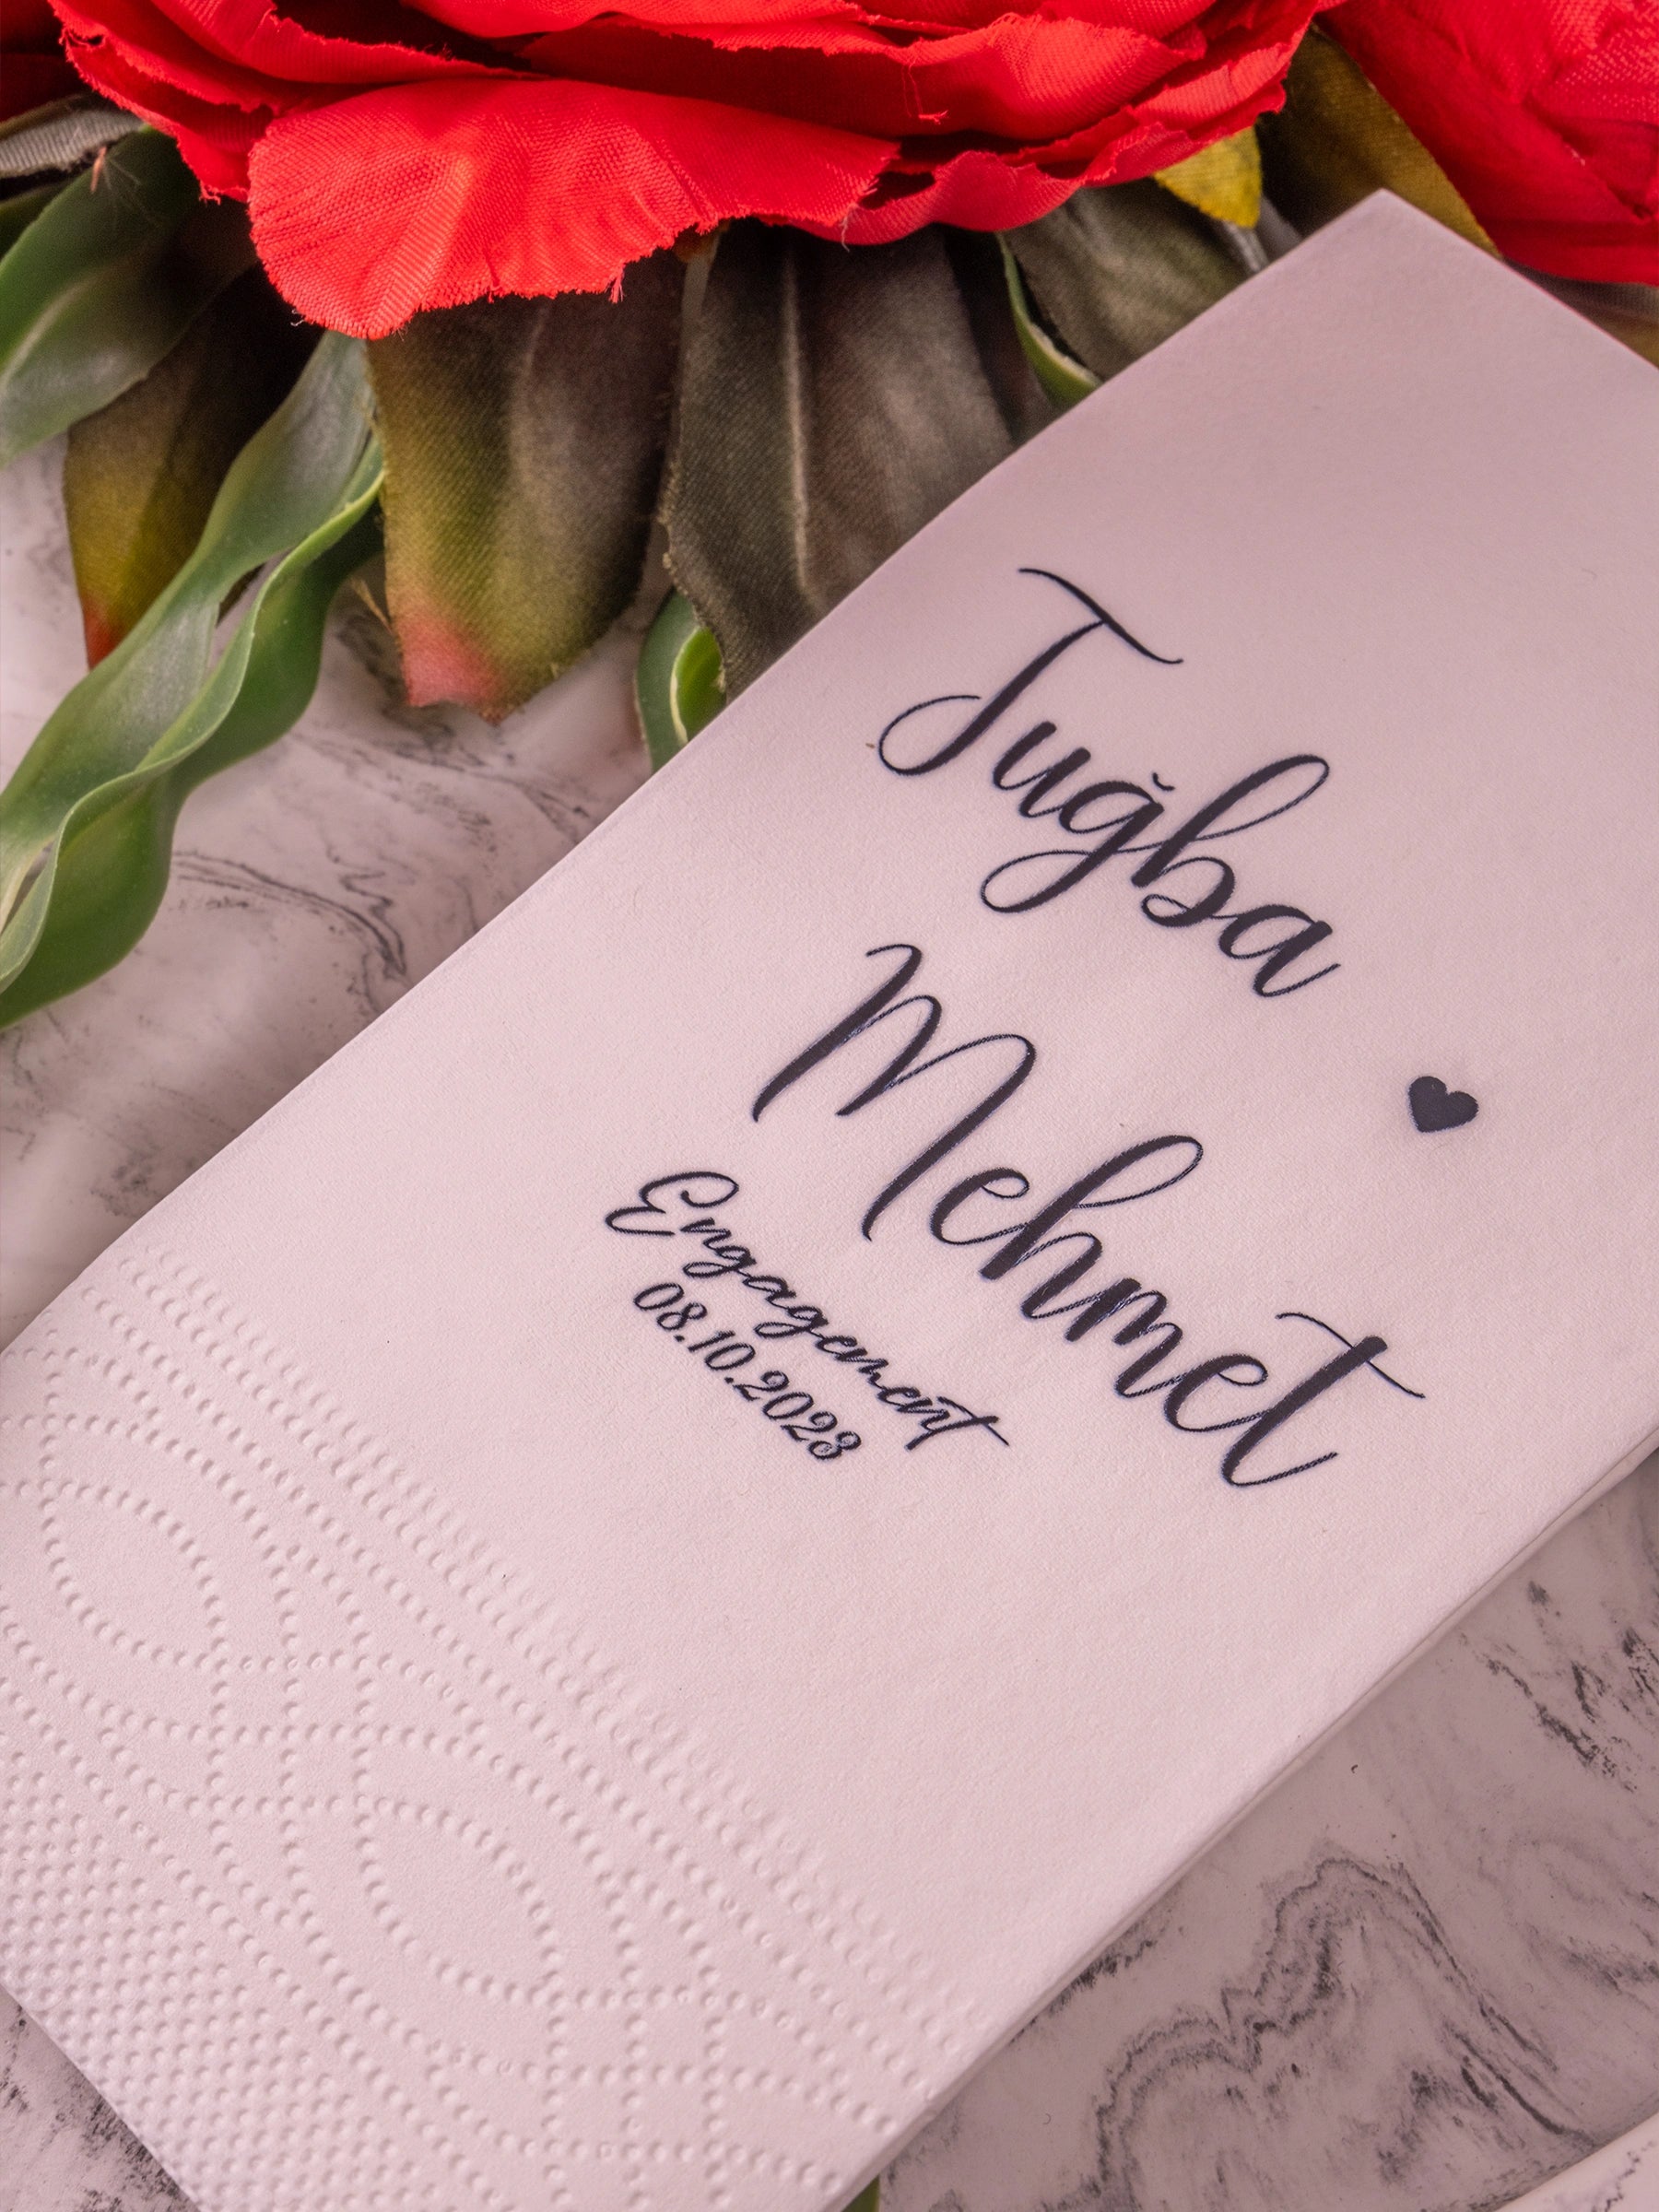 Tuğba
Mehmet
Engagement
08.10.2023